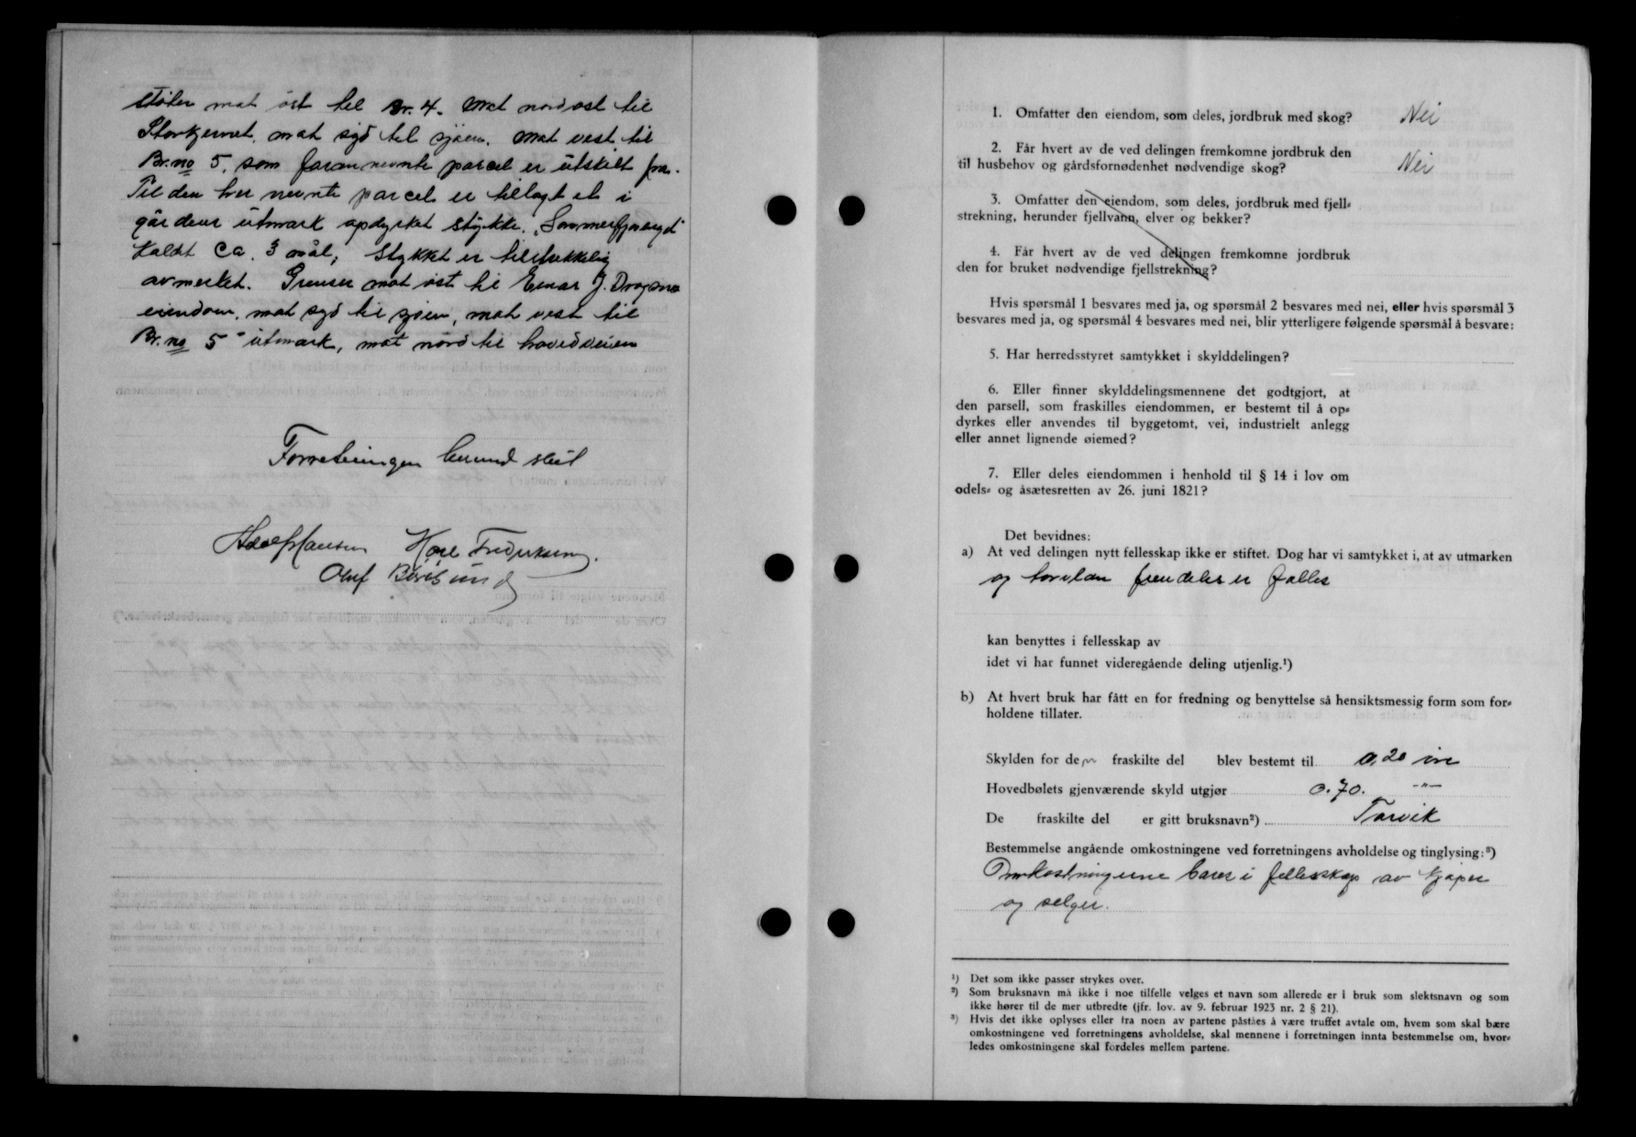 støter mot øst til Br. 4. Mot nordost til
Storkjernet, mot syd til sjøen. Mot vest til
Br.no 5, som foran nevnte parcel er utskilt fra.
Til den her nevnte parcel er tillagt et i
gårdens utmark opdyrket stykke.
kaldt ca. 3 mål, Stykket er tilstrekkelig
avmerket. Grenser mot øst til Einar J.
eiendom, mot syd til sjøen, mot vest til
Br. no 5 utmark, mot nord til hovedveien
Forretningen herved slut
Adolf Hansen
Fredriksen.
Oluf
1. Omfatter den eiendom, som deles, jordbruk med skog? Nei
2. Får hvert av de ved delingen fremkomne jordbruk den
til husbehov og gårdsfornødenhet nødvendige skog? Nei
3. Omfatter den eiendom, som deles, jordbruk med fjell-
strekning, herunder fjellvann, elver og bekker?
4. Får hvert av de ved delingen fremkomne jordbruk
den for bruket nødvendige fjellstrekning?
Hvis spørsmål 1 besvares med ja, og spørsmål 2 besvares med nei, eller hvis spørsmål 3
besvares med ja, og spørsmål 4 besvares med nei, blir ytterligere følgende spørsmål å besvare:
5. Har herredsstyret samtykket i skylddelingen?
6. Eller finner skylddelingsmennene det godtgjort, at
den parsell, som fraskilles eiendommen, er bestemt til å op-
dyrkes eller anvendes til byggetomt, vei, industrielt anlegg
eller annet lignende øiemed?
7. Eller deles eiendommen i henhold til § 14 i lov om
odels- og åsætesretten av 26. juni 1821?
Det bevidnes:
a) At ved delingen nytt fellesskap ikke er stiftet. Dog har vi samtykket i, at av utmarken
og fremdeles er fælles
kan benyttes i fellesskap av
idet vi har funnet videregående deling utjenlig.¹)
b) At hvert bruk har fått en for fredning og benyttelse så hensiktsmessig form som for-
holdene tillater.
Skylden for den fraskilte del blev bestemt til 0,20 øre
Hovedbølets gjenværende skyld utgjør 0.70. -"-
De fraskilte del er gitt bruksnavn²) Torvik
Bestemmelse angående omkostningene ved forretningens avholdelse og tinglysing:³)
Omkostningerne bæres i fellesskap av kjøper
og selger.
¹) Det som ikke passer strykes over.
²) Som bruksnavn må ikke i noe tilfelle velges et navn som allerede er i bruk som slektsnavn og som
ikke hører til de mer utbredte (jfr. lov. av 9. februar 1923 nr. 2 § 21).
³) Hvis det ikke oplyses eller fra noen av partene påståes å være truffet avtale om, hvem som skal bære
omkostningene ved forretningens avholdelse, skal mennene i forretningen innta bestemmelse om, hvor-
ledes omkostningene skal fordeles mellem partene.